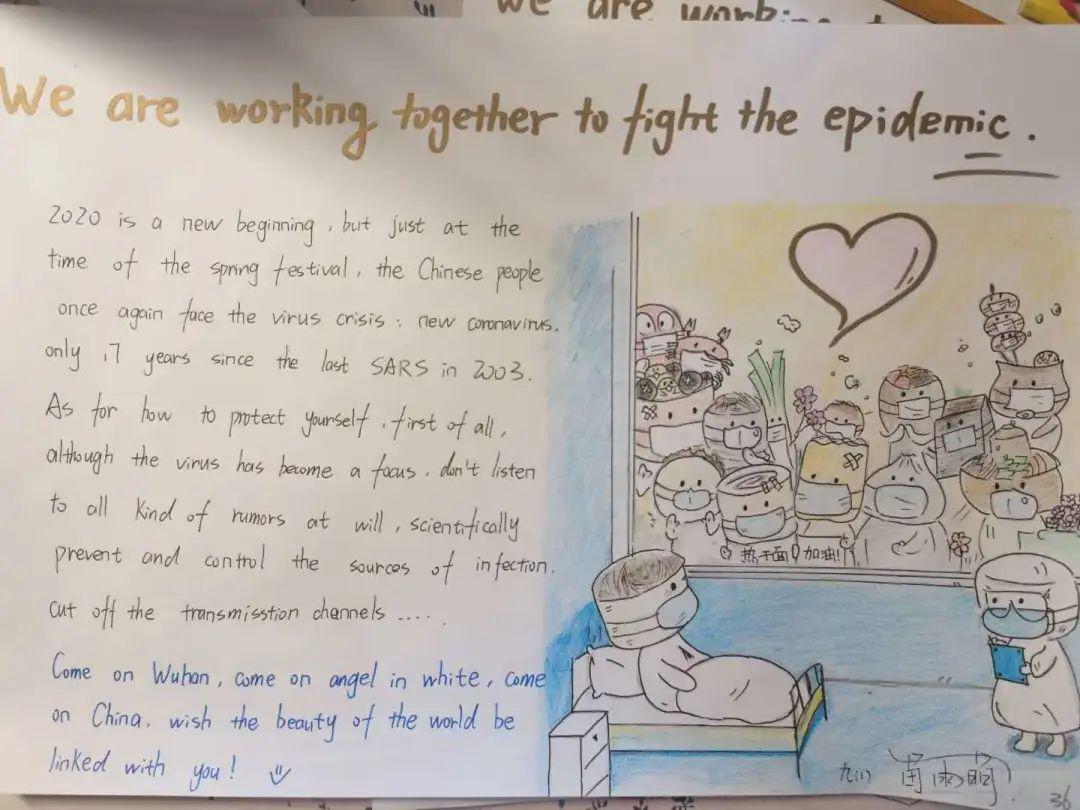 we are working t
We are working together to fight the epidemic.
2020 is a new beginning, but just at the
time of the spring festival, the Chinese people
once again face the virus crisis: new coronavirus.
only 17 years since the last SARS in 2003.
As for how to protect yourself, first of all,
although the virus has become a focus, don't listen
to all kind of rumors at will, scientifically
prevent and control the sources of infection.
cut off the transmisstion channels .....
Come on Wuhan, come on angel in white, come
on China. wish the beauty of the world be
linked with you!
热干面 加油!
九(1)
36